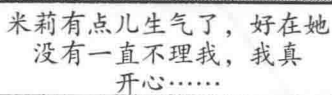 米莉有点儿生气了，好在她
没有一直不理我，我真
开心……